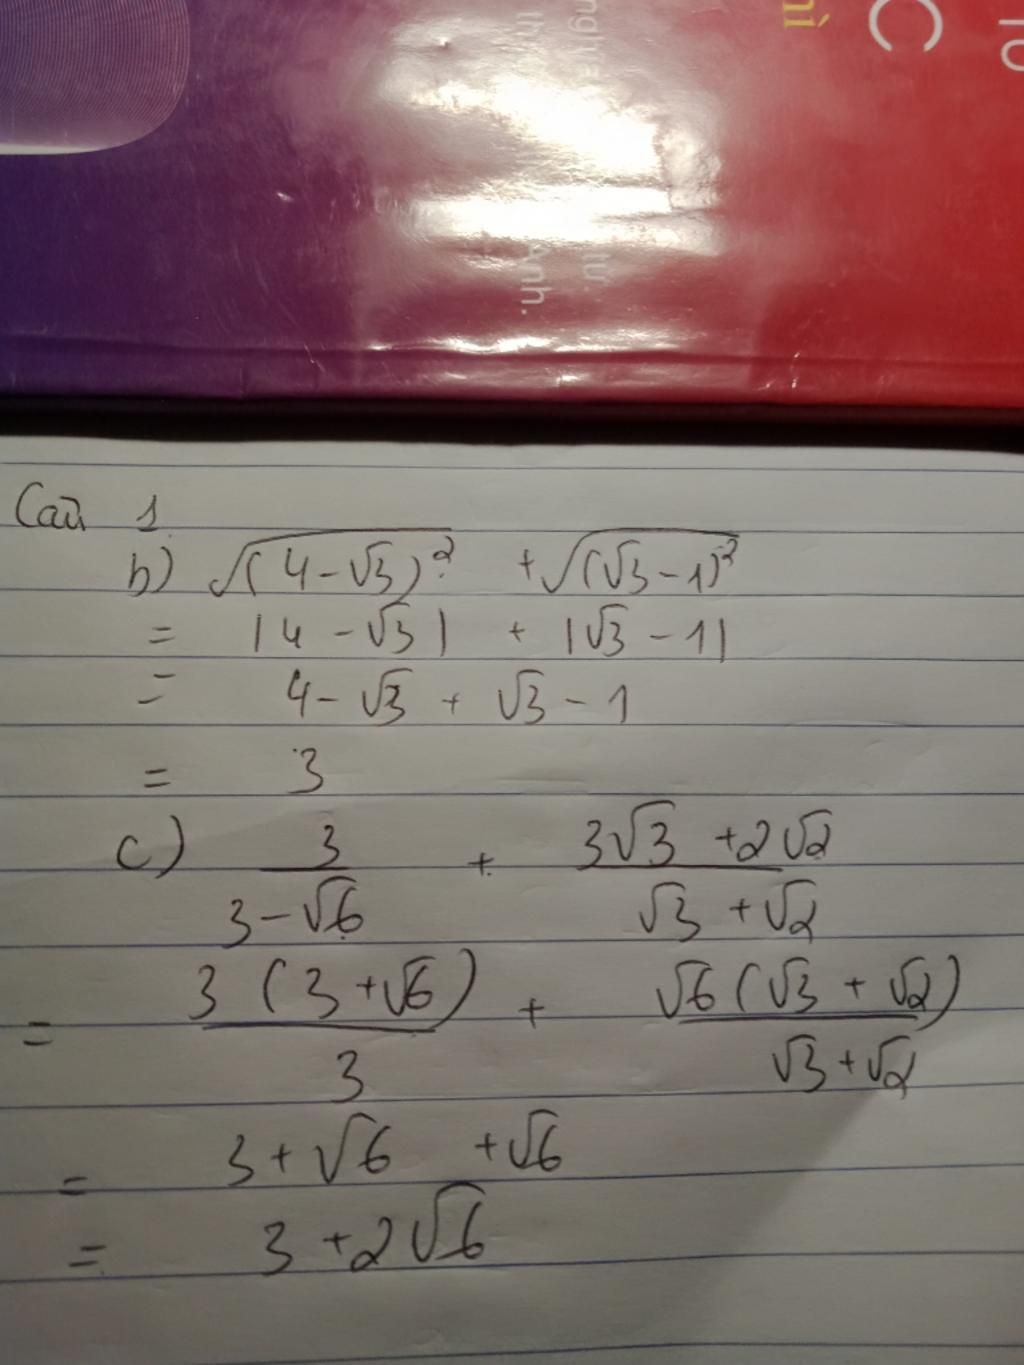 10
C
nì
Anh.
Câu 1
b) √(4-√3)² + √(√3-1)²
= |4-√3| + |√3-1|
= 4-√3 + √3-1
= 3
c) 3/(3-√6) + (3√3+2√2)/(√3+√2)
= 3(3+√6)/3 + √6(√3+√2)/(√3+√2)
= 3+√6 +√6
= 3+2√6